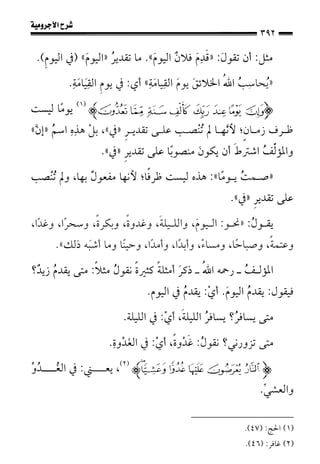 شرح الآجرومية
٣٩٢
مثل: أن تقولَ: «قَدِمَ فلانٌ اليومَ». ما تقديرُ «اليومَ» (في اليومِ).
«يُحاسِبُ اللهُ الخلائقَ يومَ القِيامَةِ» أي: في يومِ القِيَامَةِ.
﴿وَإِنَّ يَوْمًا عِندَ رَبِّكَ كَأَلْفِ سَنَةٍ مِّمَّا تَعُدُّونَ﴾ (١) يومًا ليست
ظرف زمان؛ لأنَّها لم تُنْصَب على تقديرِ «في»، بلْ هذِهِ اسمُ «إنَّ»
والمؤلِّفُ اشترطَ أن يكونَ منصوبًا على تقديرِ «في».
«صمتُ يومًا»: هذه ليست ظرفًا؛ لأنها مفعولٌ بها، ولم تُنْصب
على تقديرِ «في».
يقولُ: «نحوُ: اليومَ، والليلةَ، وغدوةً، وبكرةً، وسحرًا، وغدًا،
وعتمةً، وصباحًا، ومساءً، وأبدًا، وأمدًا، وحينًا وما أشبَه ذلك».
المؤلفُ ـ رحمه اللهُ ـ ذكرَ أمثلةً كثيرةً نقولُ مثلاً: متى يقدمُ زيدٌ؟
فيقول: يقدمُ اليومَ. أيْ: يقدمُ في اليومِ.
متى يسافرُ؟ يسافرُ الليلةَ، أيْ: في الليلة.
متى تزورني؟ نقولُ: غَدْوةً، أيْ: في الغَدْوةِ.
﴿النَّارُ يُعْرَضُونَ عَلَيْهَا غُدُوًّا وَعَشِيًّا﴾ (٢)، يعني: في الغُدُوِّ
والعشيِّ.
(١) الحج: (٤٧).
(٢) غافر: (٤٦).